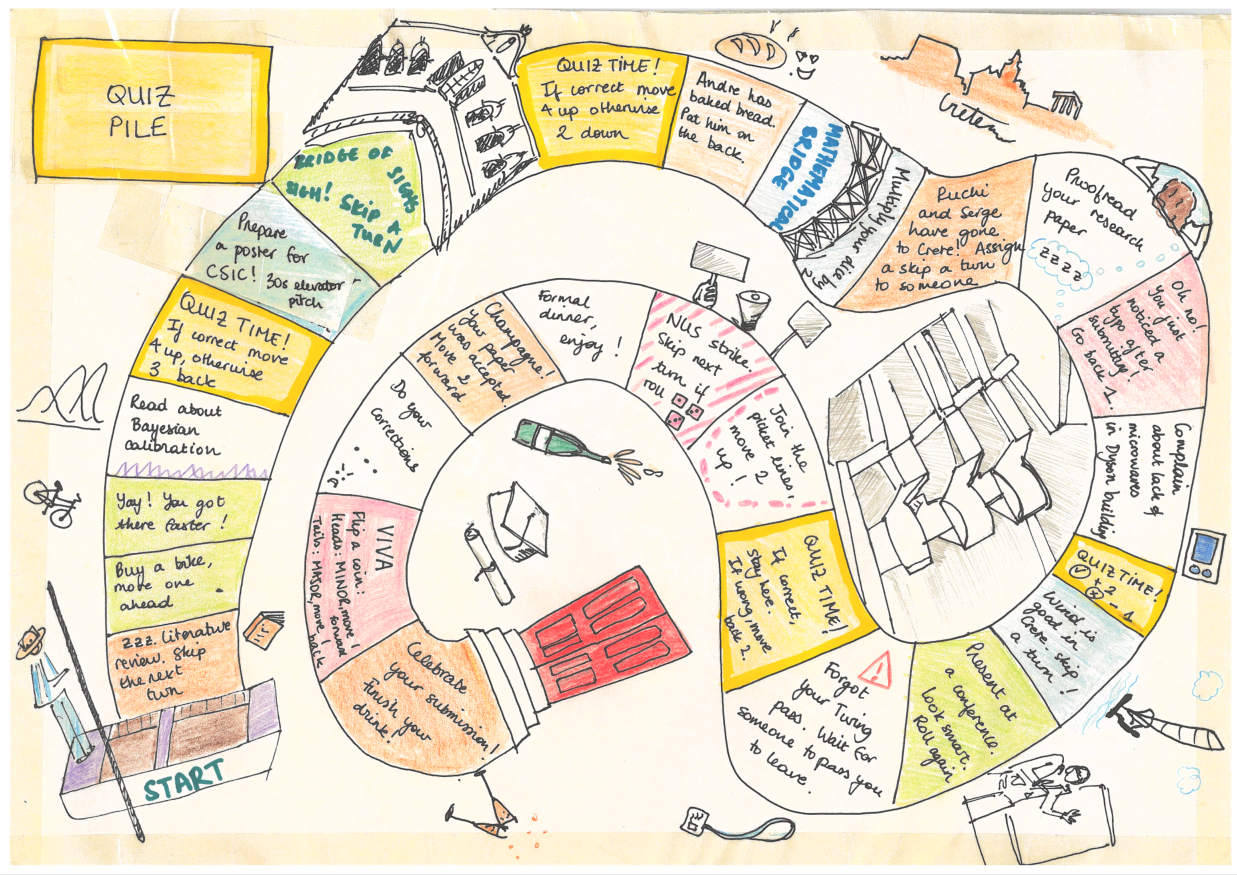 QUIZ
PILE
START
zzz. Literature
review. Skip
the next
turn
Buy a bike,
move one
ahead
Yay! You got
there faster!
Read about
Bayesian
calibration
QUIZ TIME!
If correct move
4 up, otherwise
3 back
Prepare
a poster for
CSIC! 30s elevator
pitch
BRIDGE OF SIGHS
SIGH! SKIP A
TURN
QUIZ TIME!
If correct move
4 up otherwise
2 down
Andre has
baked bread.
Pat him on
the back.
MATHEMATICAL
BRIDGE
Multiply your dice by 2
Ruchi
and Serge
have gone
to Crete! Assign
a skip a turn
to someone
Crete
Proofread
your research
paper
zzzz
Oh no!
You just
noticed a
typo after
submitting!
Go back 1.
Complain
about lack of
microwaves
in Dyson building
QUIZ TIME!
✓ + 2
x - 1
Wind is
good in
Crete. Skip
a turn!
Present at
a conference.
Look smart.
Roll again
Forgot
your Turing
pass. Wait for
someone to pass you
to leave.
QUIZ TIME!
If correct,
stay here.
If wrong, move
back 2.
Join the
picket lines,
move 2
up!
NUS strike.
Skip next
turn if
roll
Formal
dinner,
enjoy!
Champagne!
Your paper
was accepted.
Move 2
forward
Do your
corrections
VIVA
Flip a coin:
Heads: MINOR, move forward
Tails: MAJOR, move back
Celebrate
your submission!
Finish your
drink.